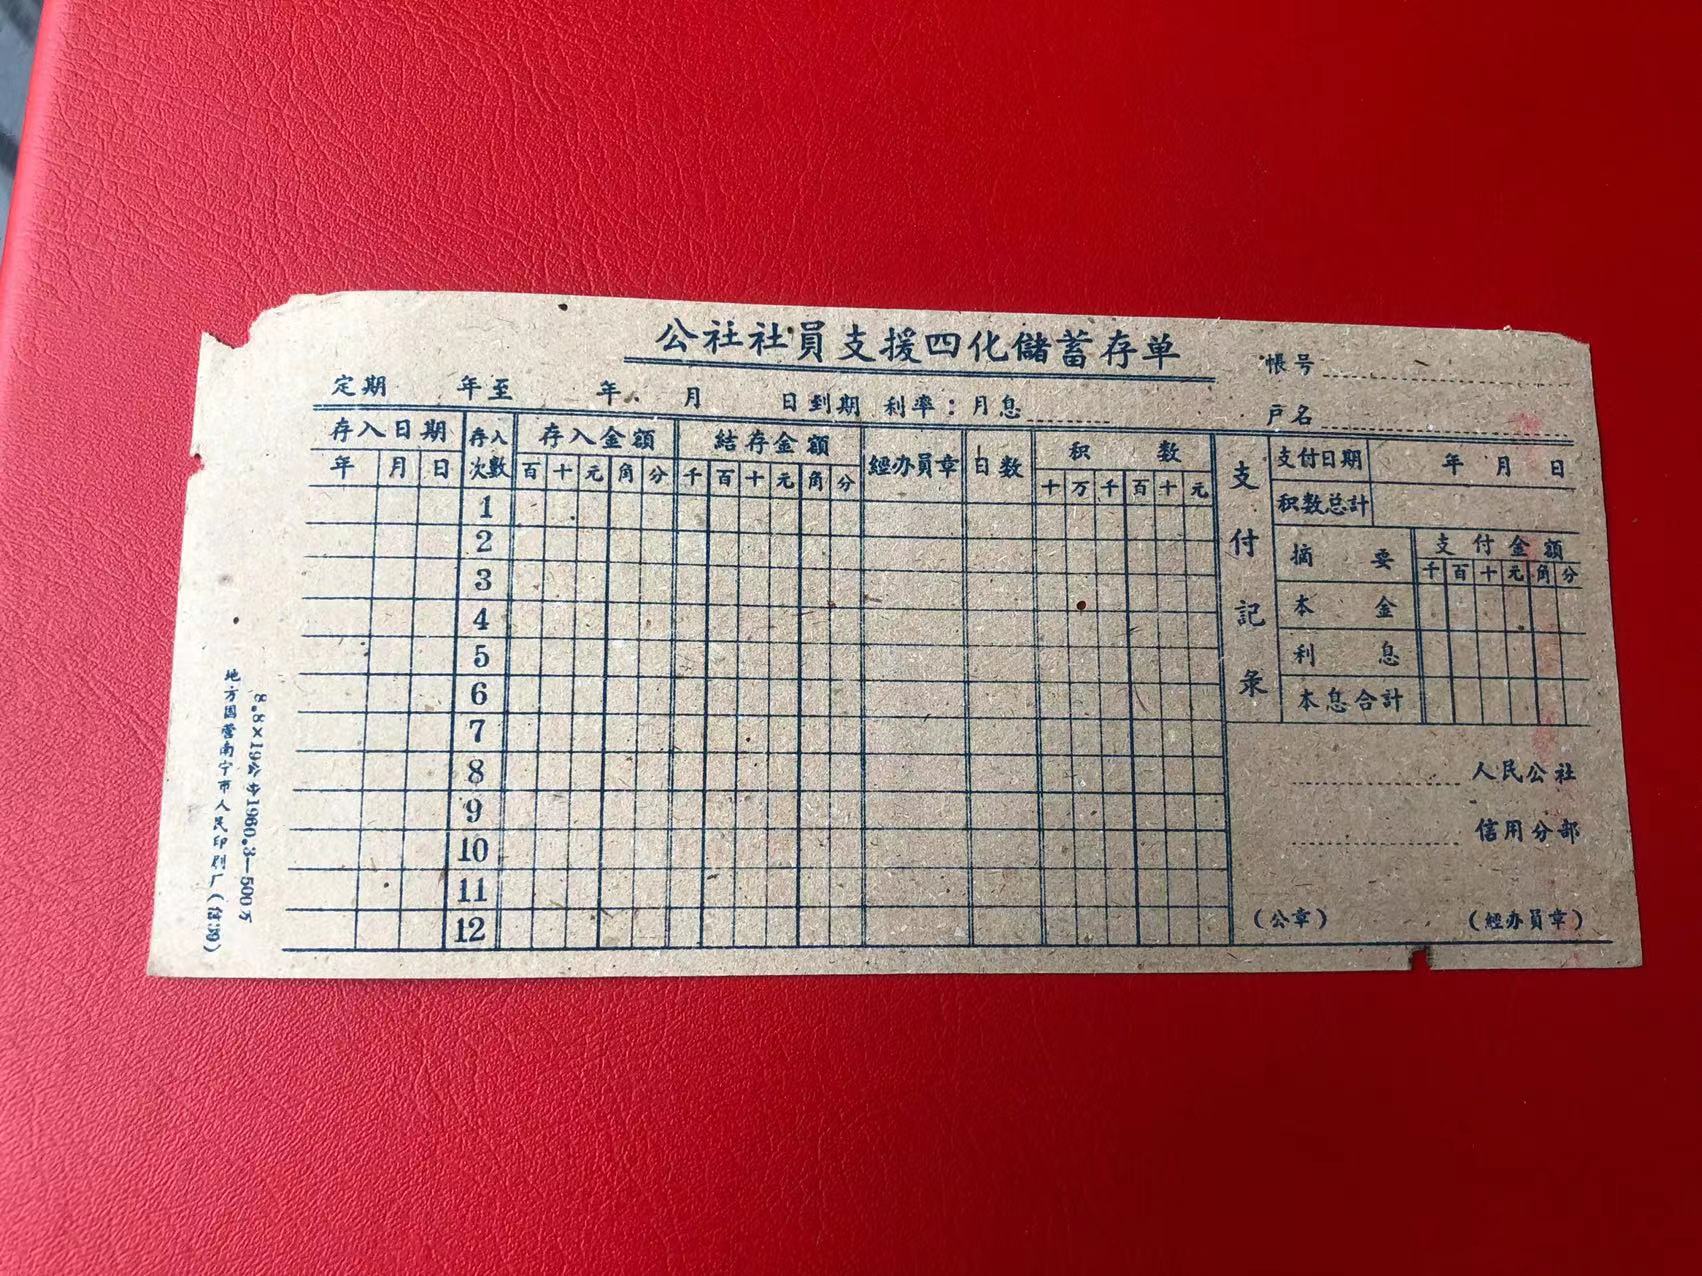 公社社員支援四化儲蓄存单
帳号
定期 年至 年 月 日到期 利率：月息
戸名
存入日期 存入次數 存入金額 結存金額 經办員章 日数 积数
年 月 日 百 十 元 角 分 千 百 十 元 角 分 十 万 千 百 十 元
1
2
3
4
5
6
7
8
9
10
11
12
支付記彔
支付日期 年 月 日
积数总計
摘要 支付金額
千 百 十 元 角 分
本金
利息
本息合計
人民公社
信用分部
（公章） （經办員章）
8.8×19公分1960.3—500万
地方国营南宁市人民印刷厂（信:39）